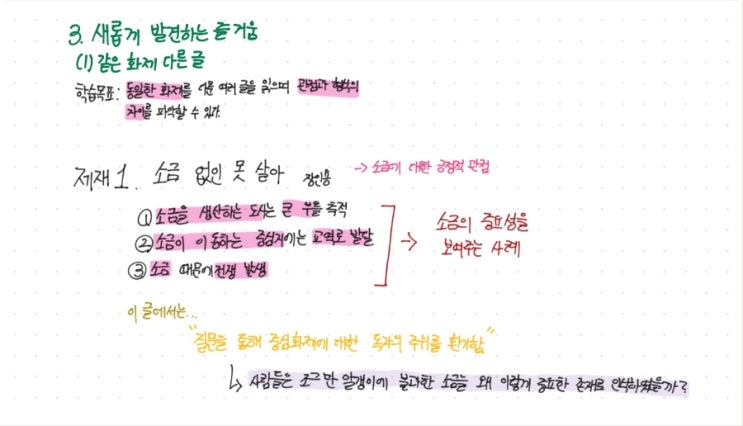 3. 새롭게 발견하는 즐거움
(1) 같은 화제 다른 글
학습목표: 동일한 화제를 다룬 여러 글을 읽으며 관점과 형식의
차이를 파악할 수 있다.
제재 1. 소금 없인 못 살아 장인용 → 소금에 대한 긍정적 관점
① 소금을 생산하는 도시는 큰 부를 축적
② 소금이 이동하는 중심지에는 교역로 발달
③ 소금 때문에 전쟁 발생
→ 소금의 중요성을
보여주는 사례
이 글에서는...
"질문을 통해 중심화제에 대한 독자의 주위를 환기함"
↳ 사람들은 조그만 알갱이에 불과한 소금을 왜 이렇게 중요한 존재로 인식하였을까?